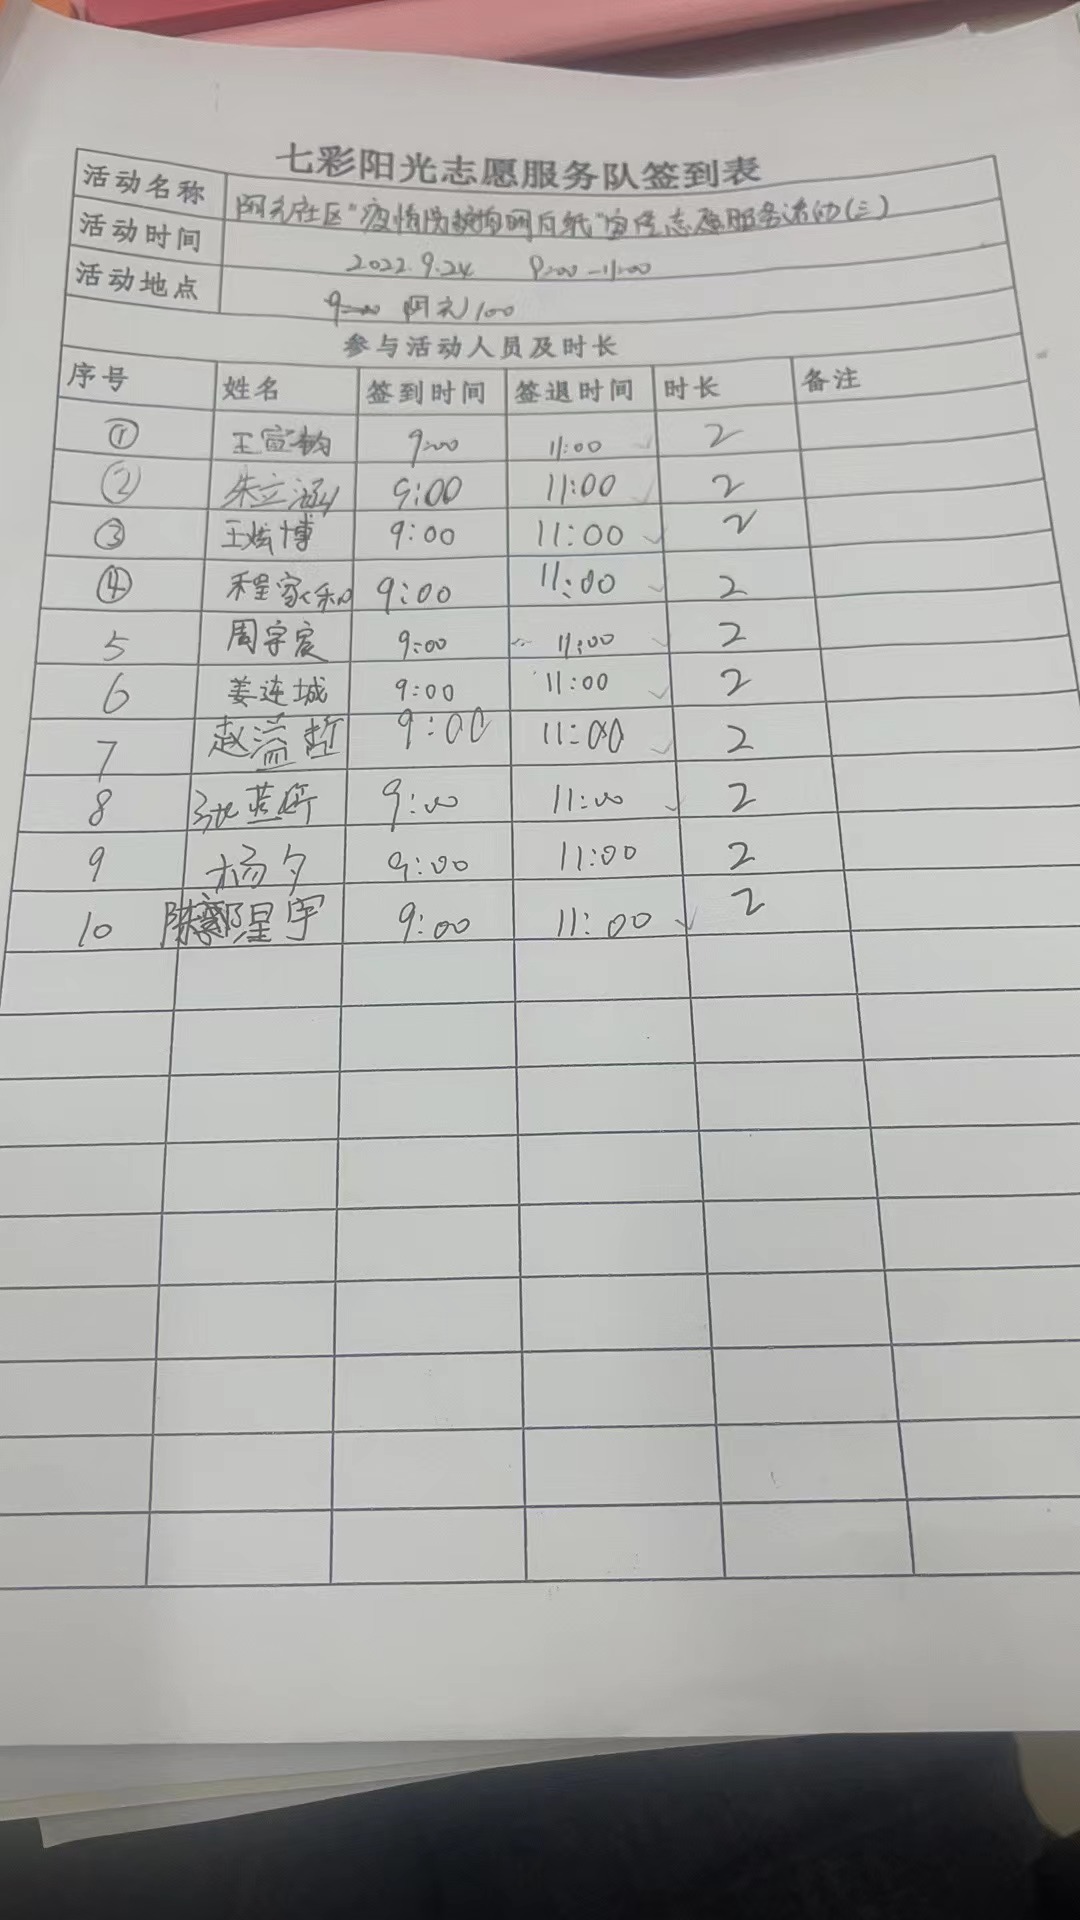 七彩阳光志愿服务队签到表
活动名称 阿元社区"疫情防 "宣传志愿服务活动(三)
活动时间 2022.9.24 9:00-11:00
活动地点 阿元100
参与活动人员及时长
序号 姓名 签到时间 签退时间 时长 备注
① 王宣 9:00 11:00 2
② 朱立涵 9:00 11:00 2
③ 王炫博 9:00 11:00 2
④ 程家和 9:00 11:00 2
5 周宇宸 9:00 11:00 2
6 姜连城 9:00 11:00 2
7 赵溢哲 9:00 11:00 2
8 9:00 11:00 2
9 杨夕 9:00 11:00 2
10 陈 星宇 9:00 11:00 2